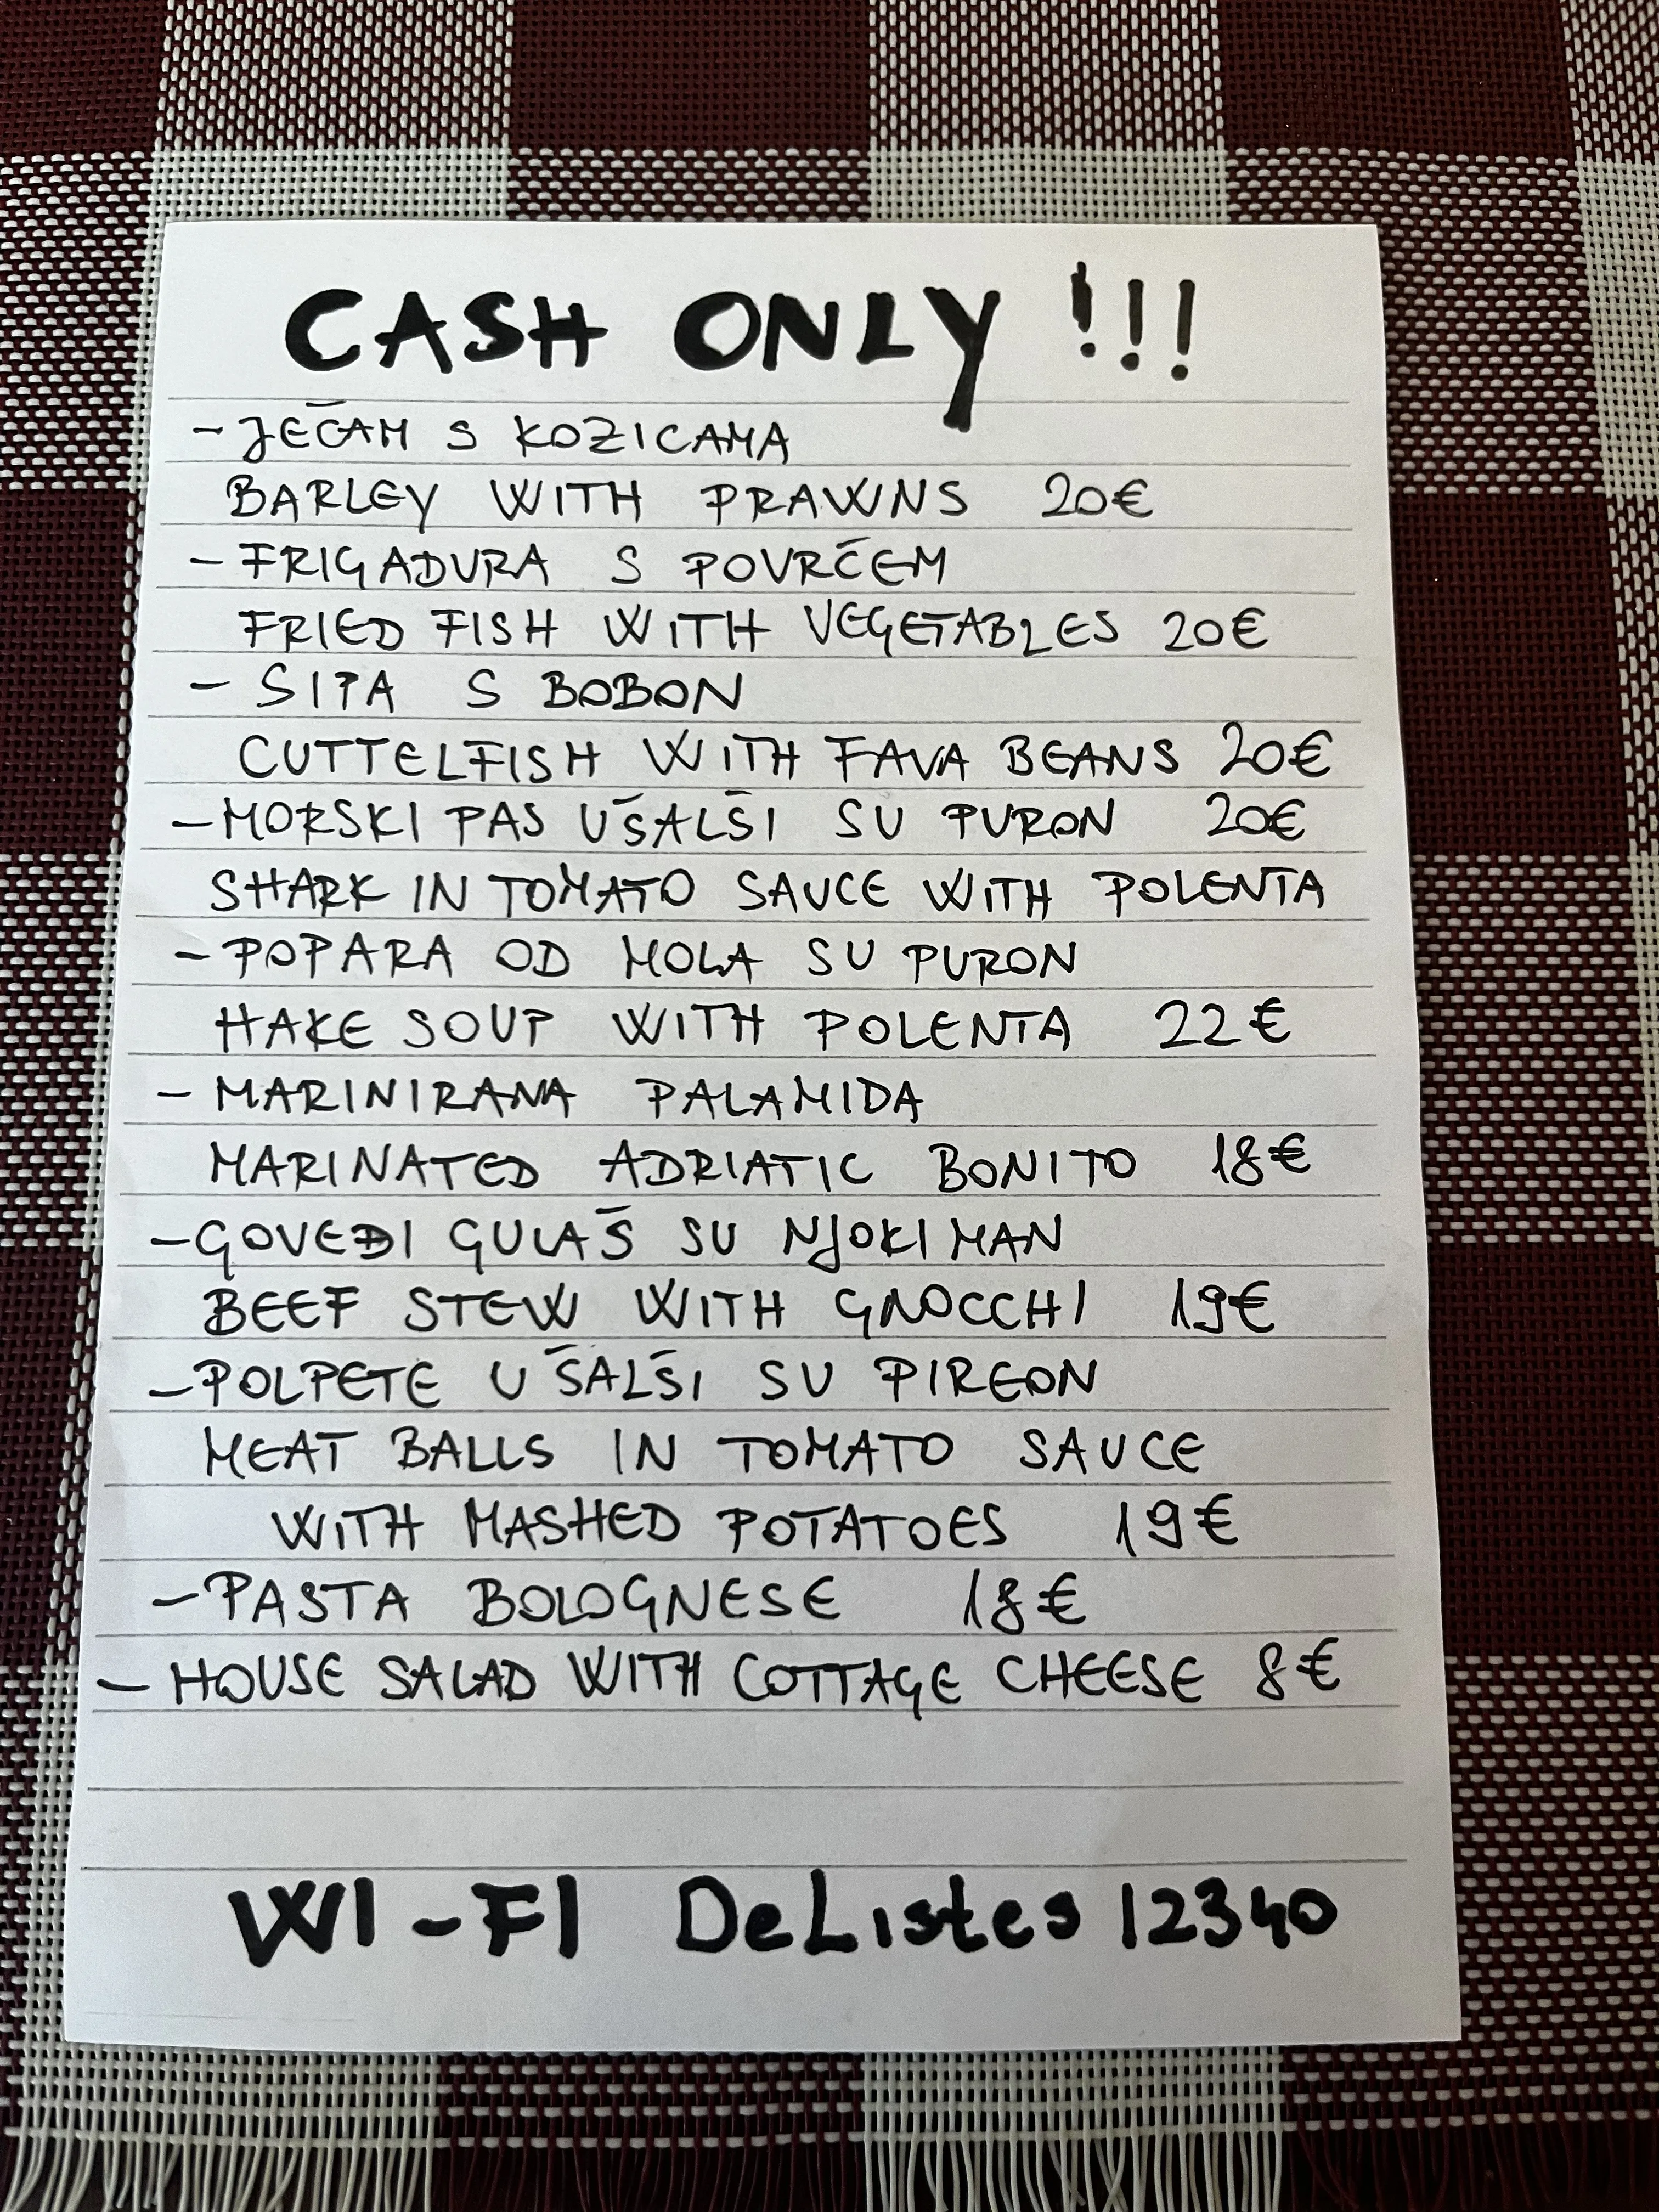 CASH ONLY !!!
- JEČAM S KOZICAMA
BARLEY WITH PRAWNS 20€
- FRIGADURA S POVRĆEM
FRIED FISH WITH VEGETABLES 20€
- SIPA S BOBON
CUTTELFISH WITH FAVA BEANS 20€
- MORSKI PAS U ŠALŠI SU PURON 20€
SHARK IN TOMATO SAUCE WITH POLENTA
- POPARA OD MOLA SU PURON
HAKE SOUP WITH POLENTA 22€
- MARINIRANA PALAMIDA
MARINATED ADRIATIC BONITO 18€
- GOVEĐI GULAŠ SU NJOKIMAN
BEEF STEW WITH GNOCCHI 19€
- POLPETE U ŠALŠI SU PIREON
MEAT BALLS IN TOMATO SAUCE
WITH MASHED POTATOES 19€
- PASTA BOLOGNESE 18€
- HOUSE SALAD WITH COTTAGE CHEESE 8€
WI-FI DeListes 12340